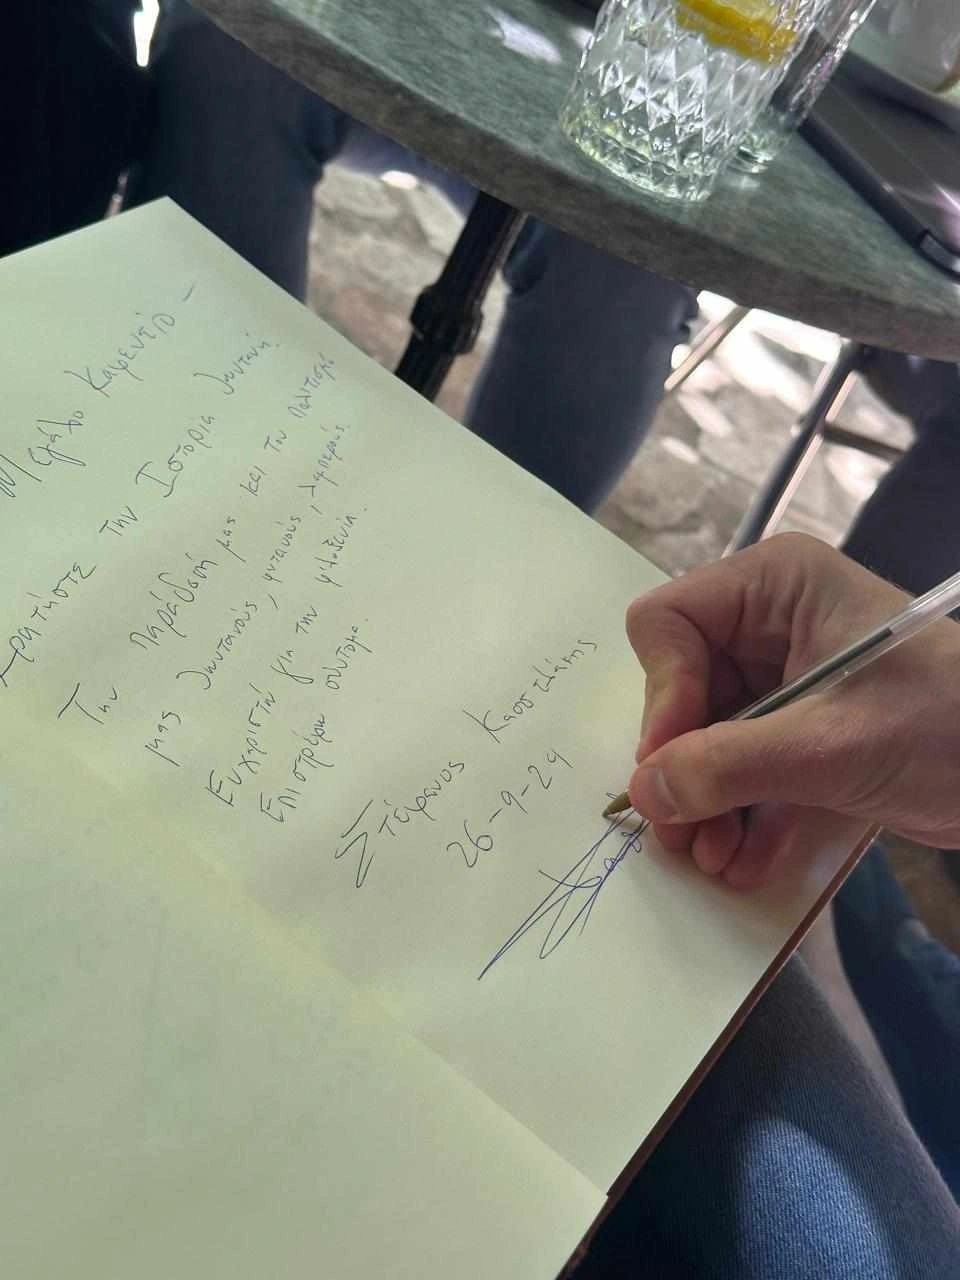 Μεγάλο Καφενείο –
Κρατήστε την Ιστορία ζωντανή.
Την παράδοσή μας και τον πολιτισμό
μας ζωντανούς, φωτεινούς, λαμπερούς.
Ευχαριστώ για την φιλοξενία.
Επιστρέφω σύντομα.
Στέφανος
26-9-24